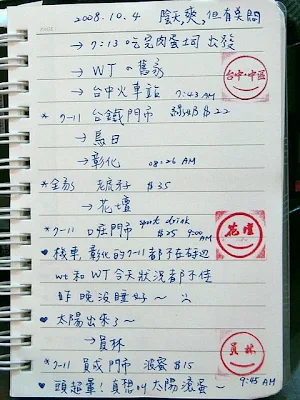 2008.10.4 陰天,爽,但有點悶
→ 7:13 吃完肉蛋土司 出發
→ WT の舊家
→ 台中火車站 7:43 AM
台中・中區
* 7-11 台鐵門市 $22
→ 烏日
→ 彰化 08:26 AM
* 全家 $35
→ 花壇
* 7-11 門市 sport drink $25 9:00 AM
花壇
♥ 機車,彰化的 7-11 都不在右邊
wt 和 WT 今天狀況都不佳
昨晚沒睡好~
♥ 太陽出來了~
→ 員林
員林
* 7-11 員成門市 波蜜 $15
9:45 AM
♥ 頭超暈!真想叫太陽滾蛋~